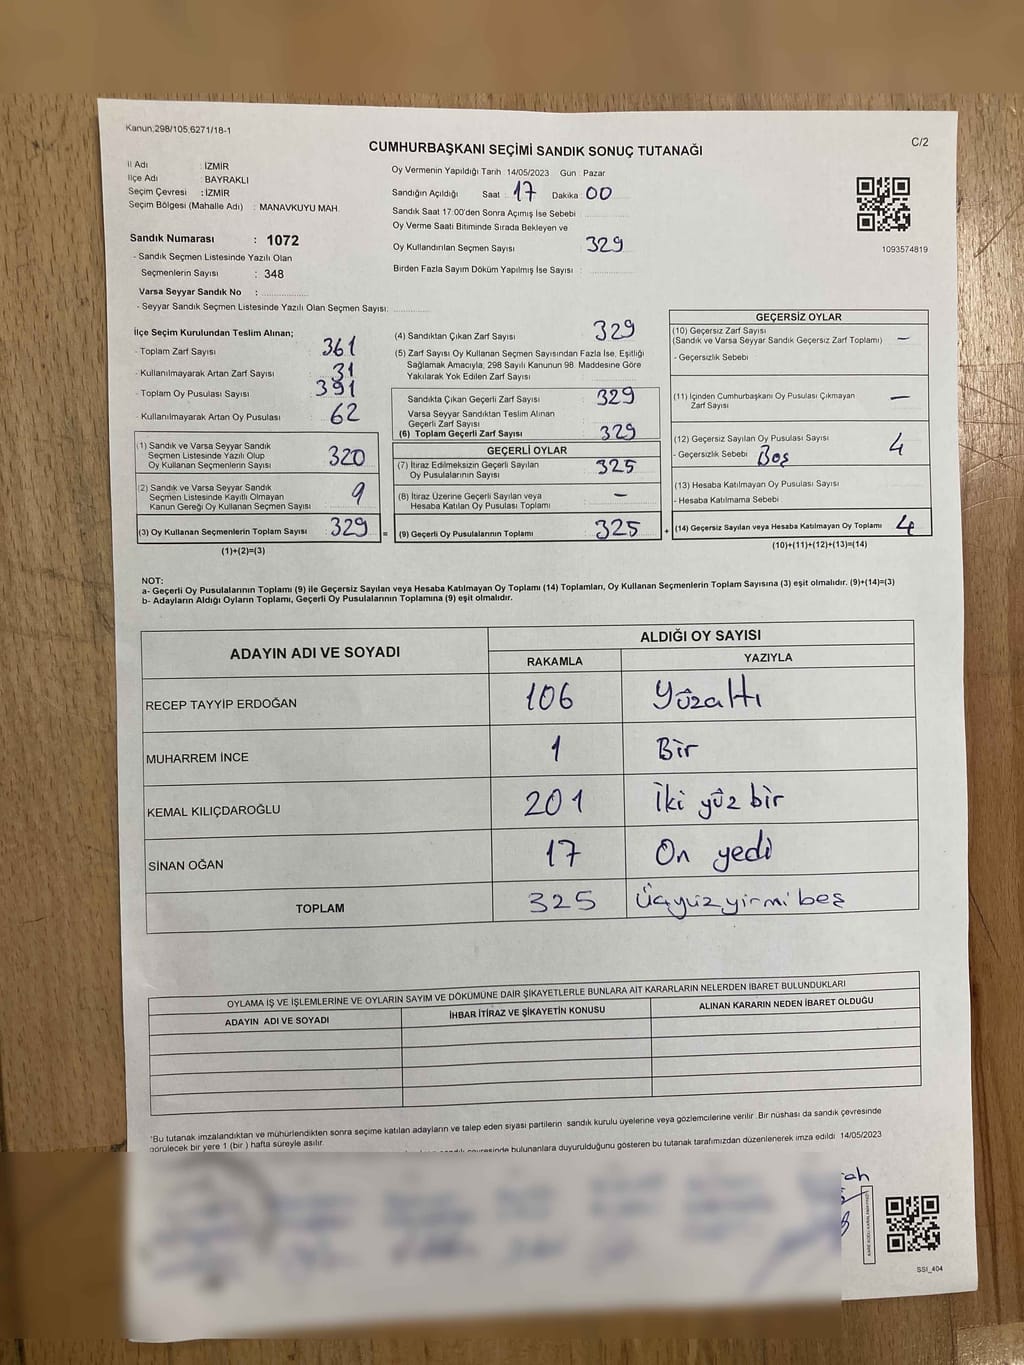 Kanun,298/105,6271/18-1
C/2
CUMHURBAŞKANI SEÇİMİ SANDIK SONUÇ TUTANAĞI
İl Adı : İZMİR
İlçe Adı : BAYRAKLI
Seçim Çevresi : İZMİR
Seçim Bölgesi (Mahalle Adı) : MANAVKUYU MAH.
Sandık Numarası : 1072
- Sandık Seçmen Listesinde Yazılı Olan
Seçmenlerin Sayısı : 348
Varsa Seyyar Sandık No :
- Seyyar Sandık Seçmen Listesinde Yazılı Olan Seçmen Sayısı:
Oy Vermenin Yapıldığı Tarih 14/05/2023 Gün : Pazar
Sandığın Açıldığı Saat 17 Dakika 00
Sandık Saat 17:00'den Sonra Açımış İse Sebebi
Oy Verme Saati Bitiminde Sırada Bekleyen ve
Oy Kullandırılan Seçmen Sayısı 329
Birden Fazla Sayım Döküm Yapılmış İse Sayısı :
1093574819
İlçe Seçim Kurulundan Teslim Alınan;
- Toplam Zarf Sayısı 361
- Kullanılmayarak Artan Zarf Sayısı 31
- Toplam Oy Pusulası Sayısı 391
- Kullanılmayarak Artan Oy Pusulası 62
(1) Sandık ve Varsa Seyyar Sandık
Seçmen Listesinde Yazılı Olup
Oy Kullanan Seçmenlerin Sayısı 320
(2) Sandık ve Varsa Seyyar Sandık
Seçmen Listesinde Kayıtlı Olmayan
Kanun Gereği Oy Kullanan Seçmen Sayısı 9
(3) Oy Kullanan Seçmenlerin Toplam Sayısı 329 =
(1)+(2)=(3)
(4) Sandıktan Çıkan Zarf Sayısı 329
(5) Zarf Sayısı Oy Kullanan Seçmen Sayısından Fazla İse, Eşitliği
Sağlamak Amacıyla; 298 Sayılı Kanunun 98. Maddesine Göre
Yakılarak Yok Edilen Zarf Sayısı
Sandıkta Çıkan Geçerli Zarf Sayısı 329
Varsa Seyyar Sandıktan Teslim Alınan
Geçerli Zarf Sayısı
(6) Toplam Geçerli Zarf Sayısı 329
GEÇERLİ OYLAR
(7) İtiraz Edilmeksizin Geçerli Sayılan
Oy Pusulalarının Sayısı 325
(8) İtiraz Üzerine Geçerli Sayılan veya
Hesaba Katılan Oy Pusulası Toplamı –
(9) Geçerli Oy Pusulalarının Toplamı 325 +
GEÇERSİZ OYLAR
(10) Geçersiz Zarf Sayısı
(Sandık ve Varsa Seyyar Sandık Geçersiz Zarf Toplamı) –
- Geçersizlik Sebebi
(11) İçinden Cumhurbaşkanı Oy Pusulası Çıkmayan
Zarf Sayısı –
(12) Geçersiz Sayılan Oy Pusulası Sayısı 4
- Geçersizlik Sebebi Boş
(13) Hesaba Katılmayan Oy Pusulası Sayısı
- Hesaba Katılmama Sebebi
(14) Geçersiz Sayılan veya Hesaba Katılmayan Oy Toplamı 4
(10)+(11)+(12)+(13)=(14)
NOT:
a- Geçerli Oy Pusulalarının Toplamı (9) ile Geçersiz Sayılan veya Hesaba Katılmayan Oy Toplamı (14) Toplamları, Oy Kullanan Seçmenlerin Toplam Sayısına (3) eşit olmalıdır. (9)+(14)=(3)
b- Adayların Aldığı Oyların Toplamı, Geçerli Oy Pusulalarının Toplamına (9) eşit olmalıdır.
ADAYIN ADI VE SOYADI ALDIĞI OY SAYISI
RAKAMLA YAZIYLA
RECEP TAYYİP ERDOĞAN 106 Yüzaltı
MUHARREM İNCE 1 Bir
KEMAL KILIÇDAROĞLU 201 İki yüz bir
SİNAN OĞAN 17 On yedi
TOPLAM 325 Üçyüzyirmi beş
OYLAMA İŞ VE İŞLEMLERİNE VE OYLARIN SAYIM VE DÖKÜMÜNE DAİR ŞİKAYETLERLE BUNLARA AİT KARARLARIN NELERDEN İBARET BULUNDUKLARI
ADAYIN ADI VE SOYADI İHBAR İTİRAZ VE ŞİKAYETİN KONUSU ALINAN KARARIN NEDEN İBARET OLDUĞU
*Bu tutanak imzalandıktan ve mühürlendikten sonra seçime katılan adayların ve talep eden siyasi partilerin sandık kurulu üyelerine veya gözlemcilerine verilir. Bir nüshası da sandık çevresinde
görülecek bir yere 1 (bir ) hafta süreyle asılır.
bulunanlara duyurulduğunu gösteren bu tutanak tarafımızdan düzenlenerek imza edildi. 14/05/2023
SSI_404